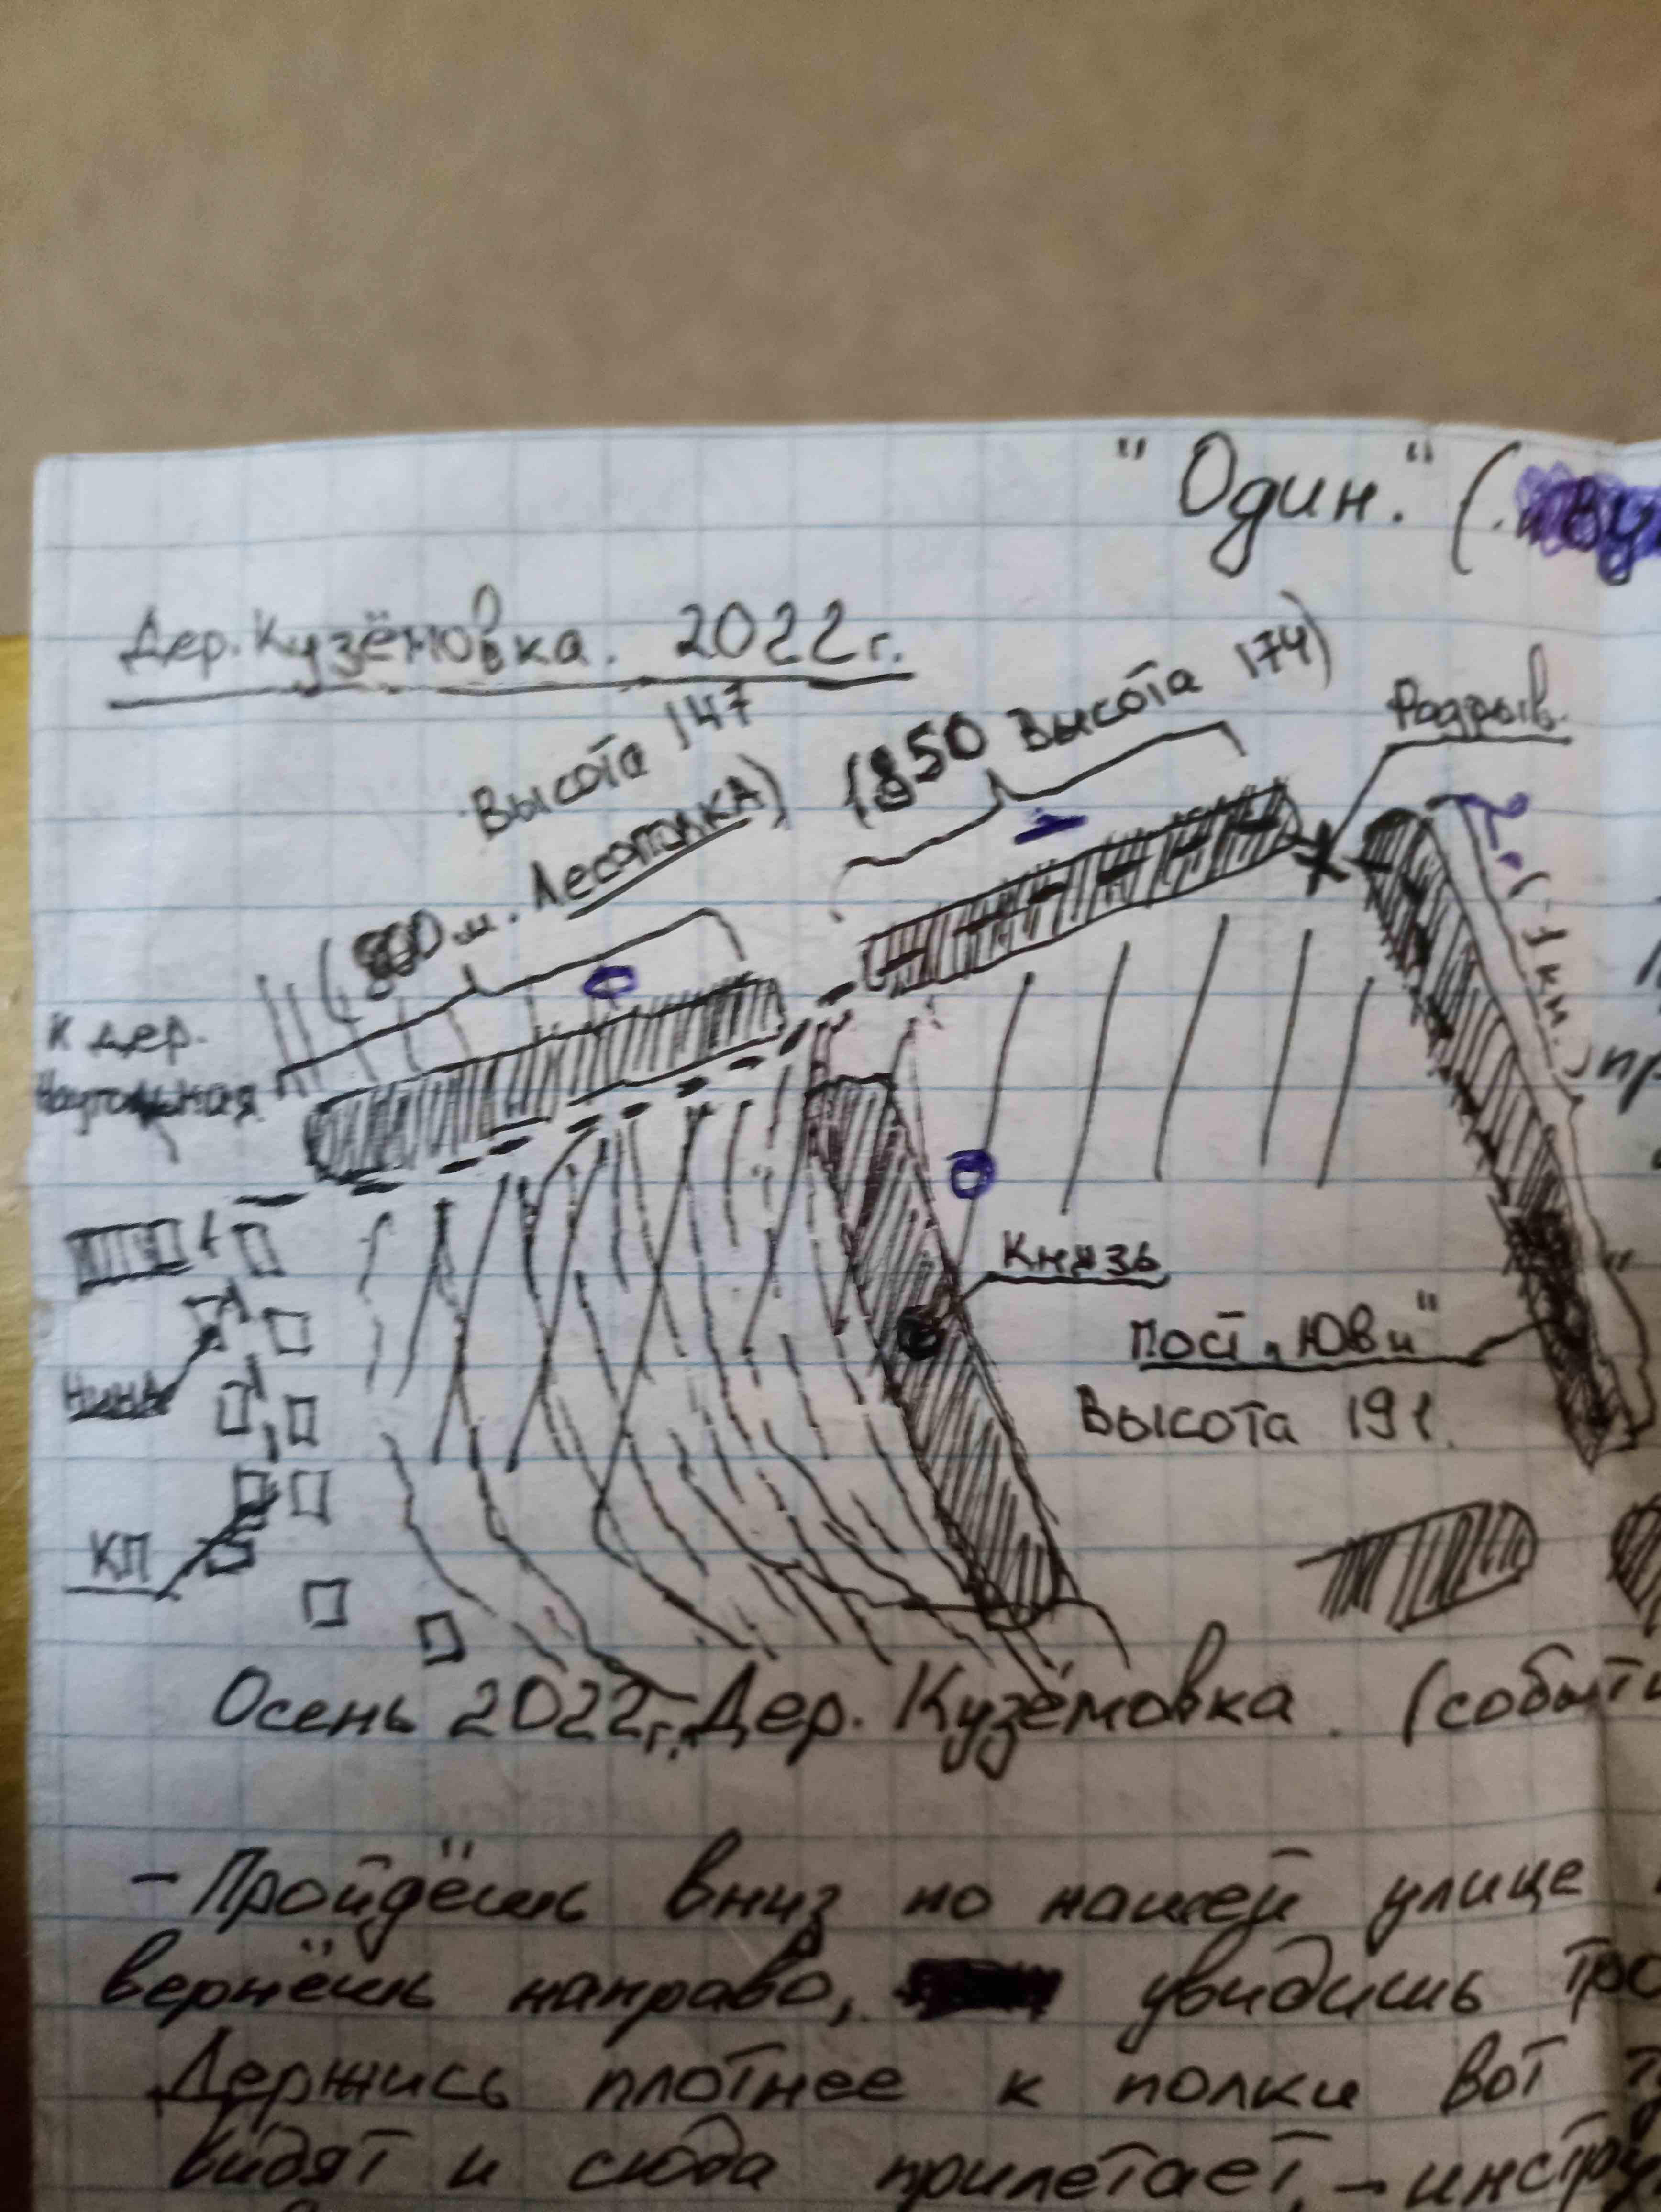 "Один." (
Дер. Кузёмовка. 2022г.
Высота 147
(800 м. Лесополка)
(850 Высота 174)
Разрыв.
2.
(-1 км.)
К дер.
Князь
Пост „Юви"
Высота 191.
Нина
КП
Осень 2022г. Дер. Кузёмовка. (событи
- Пройдёшь вниз по нашей улице
вернёшь направо, увидишь тро
Держись плотнее к полки вот
видят и сюда прилетает, - инстру